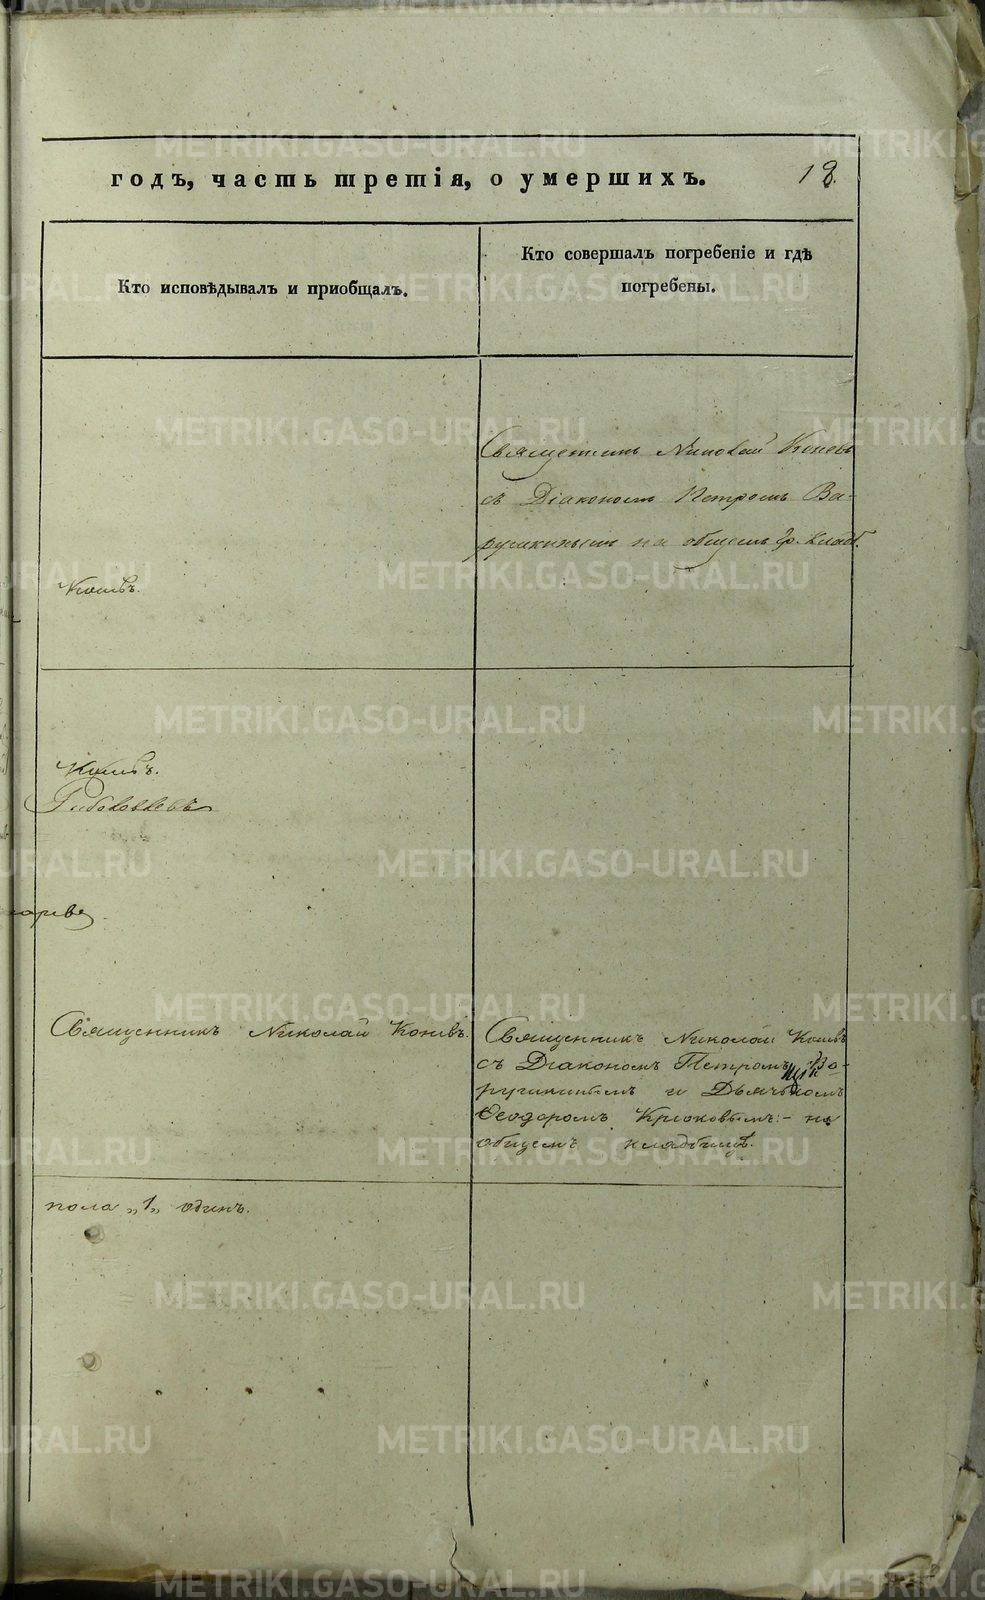 годъ, часть третія, о умершихъ.
18.
Кто исповѣдывалъ и пріобщалъ.
Кто совершалъ погребеніе и гдѣ
погребены.
Священникъ Николай Коневъ
съ Діакономъ Петромъ Ва-
ругинымъ на общемъ гр. кладб.
Коневъ.
Коневъ.
Священникъ Николай Коневъ.
Священникъ Николай Коневъ
съ Діакономъ Петромъ
и Дьячкомъ
Ѳеодоромъ Крюковымъ:- на
общемъ кладбищѣ.
пола „1„ одинъ.
METRIKI.GASO-URAL.RU